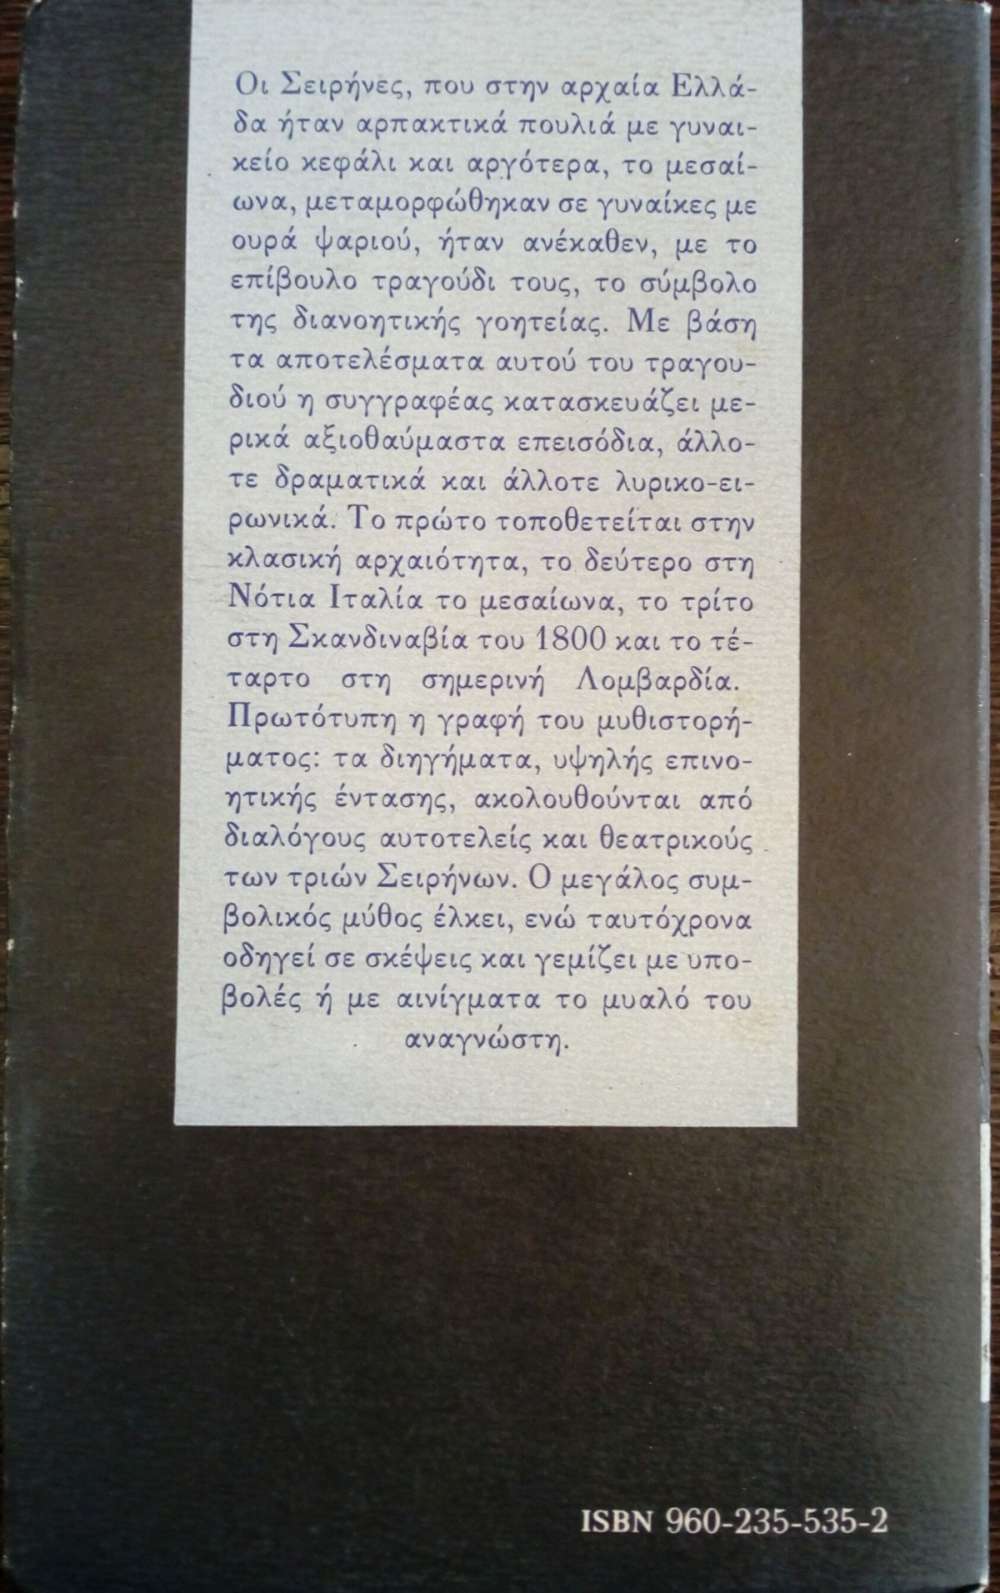 Οι Σειρήνες, που στην αρχαία Ελλά-
δα ήταν αρπακτικά πουλιά με γυναι-
κείο κεφάλι και αργότερα, το μεσαί-
ωνα, μεταμορφώθηκαν σε γυναίκες με
ουρά ψαριού, ήταν ανέκαθεν, με το
επίβουλο τραγούδι τους, το σύμβολο
της διανοητικής γοητείας. Με βάση
τα αποτελέσματα αυτού του τραγου-
διού η συγγραφέας κατασκευάζει με-
ρικά αξιοθαύμαστα επεισόδια, άλλο-
τε δραματικά και άλλοτε λυρικο-ει-
ρωνικά. Το πρώτο τοποθετείται στην
κλασική αρχαιότητα, το δεύτερο στη
Νότια Ιταλία το μεσαίωνα, το τρίτο
στη Σκανδιναβία του 1800 και το τέ-
ταρτο στη σημερινή Λομβαρδία.
Πρωτότυπη η γραφή του μυθιστορή-
ματος: τα διηγήματα, υψηλής επινο-
ητικής έντασης, ακολουθούνται από
διαλόγους αυτοτελείς και θεατρικούς
των τριών Σειρήνων. Ο μεγάλος συμ-
βολικός μύθος έλκει, ενώ ταυτόχρονα
οδηγεί σε σκέψεις και γεμίζει με υπο-
βολές ή με αινίγματα το μυαλό του
αναγνώστη.
ISBN 960-235-535-2